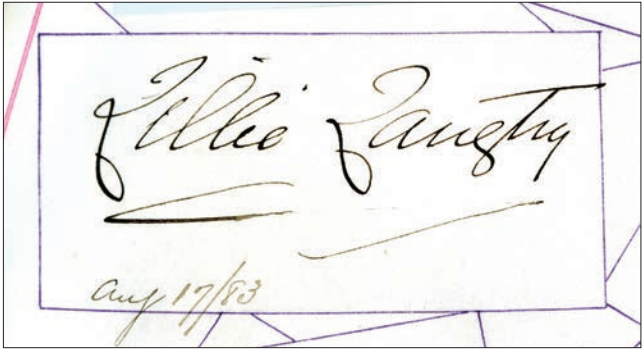 Lillie Langtry
Aug 17/83